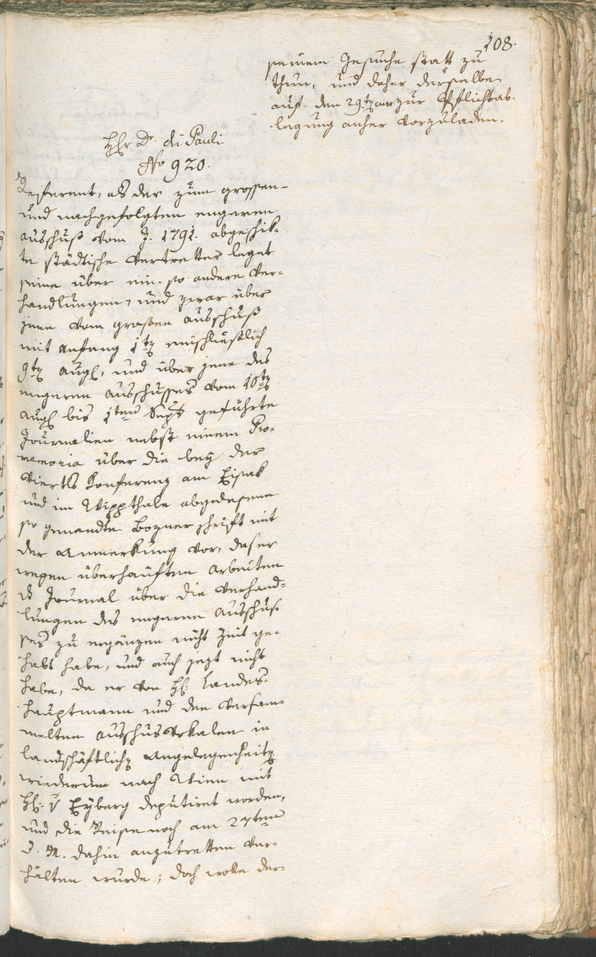 108.
seinem Gesuche statt zu
thun, und daher derselbe
auf den 29ten zur Pflichtab-
legung anher vorzuladen.
Hr Dr. di Pauli
No 920.
Referent, als der zum grossen-
und nachgefolgten engeren
Ausschuß vom J. 1791. abgeschik-
te städtische Vertretter leget
seine über ein- so andere Ver-
handlungen, und zwar über
jene vom großen Ausschuß
mit Anfang 1ten einschlüßlich
9ten Augs, und über jene des
engeren Ausschusses vom 10ten
Augs bis 1ten Septs geführte
Journalien nebst einem Pro-
memoria über die bey der
Viertls Konferenz am Eisak
und im Wippthale abgelesene
so genandte Bozner Schrift mit
der Anmerkung vor, daß er
wegen überhäuften Arbeiten
das Journal über die Verhand-
lungen des engeren Ausschus-
ses zu ergänzen nicht Zeit ge-
habt habe, und auch jezt nicht
habe, da er von H. Landes-
hauptmann und den Versam-
melten Ausschus Vokalen in
landschäftlichen Angelegenheiten
wiederum nach Wien mit
H. v Eyberg deputirt worden,
und die Reise noch am 27ten
d. M. dahin anzutretten ver-
halten wurde; doch wolle der-